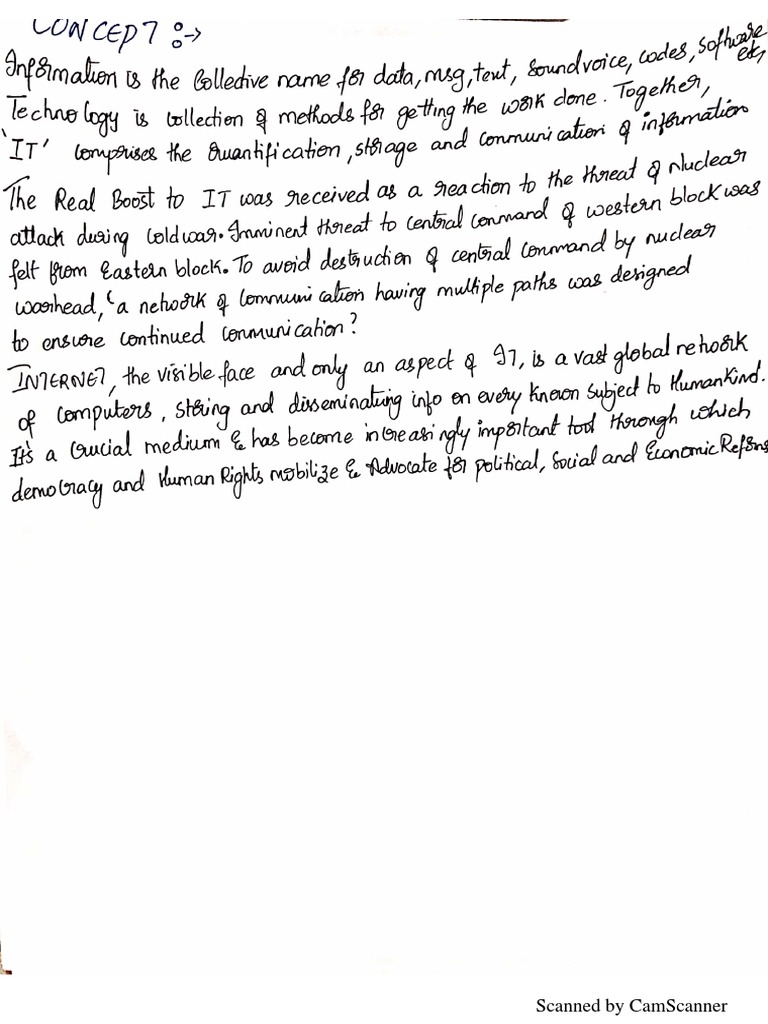 CONCEPT :->
Information is the Collective name for data, msg, text, sound voice, codes, software etc,
Technology is collection of methods for getting the work done. Together,
'IT' comprises the quantification, storage and communication of information
The Real Boost to IT was received as a reaction to the threat of Nuclear
attack during cold war. Imminent threat to central command of western block was
felt from Eastern block. To avoid destruction of central command by nuclear
warhead, 'a network of communication having multiple paths was designed
to ensure continued communication?
INTERNET, the visible face and only an aspect of IT, is a vast global network
of computers, storing and disseminating info on every known subject to Humankind.
It's a crucial medium & has become increasingly important tool through which
democracy and Human Rights mobilize & Advocate for political, Social and Economic Reforms
Scanned by CamScanner